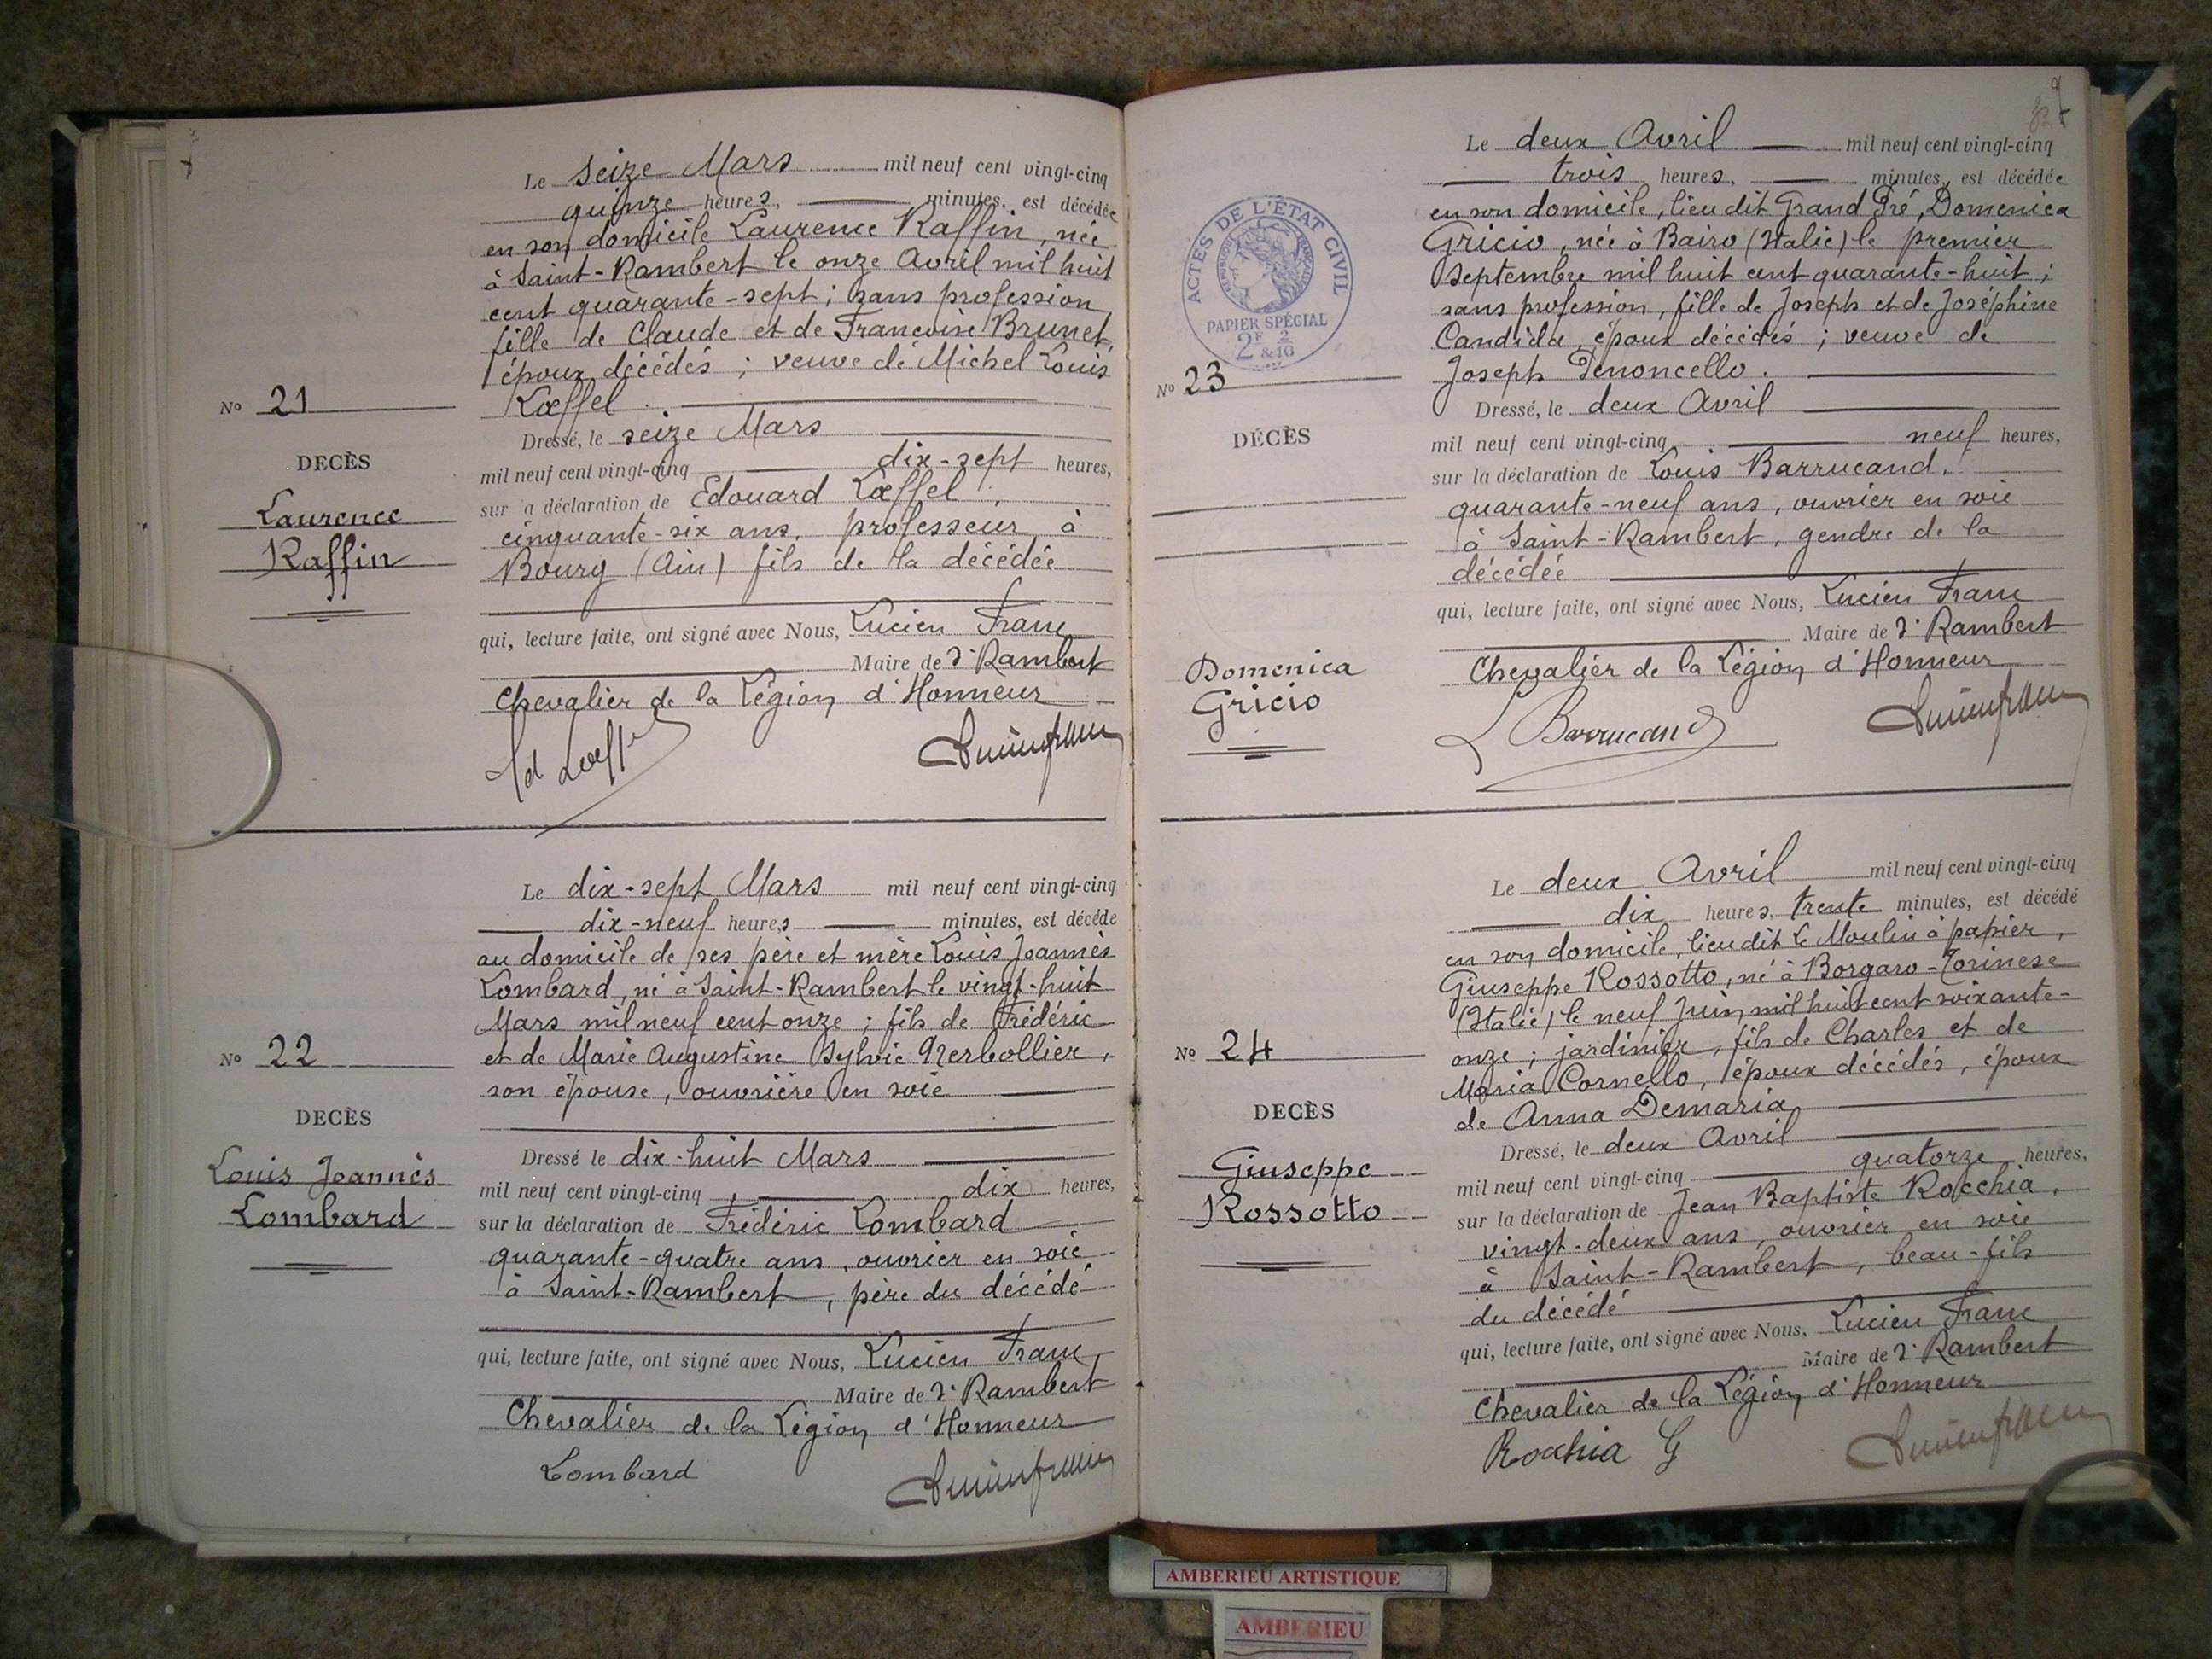 Le seize Mars mil neuf cent vingt-cinq
quinze heures, minutes, est décédée
en son domicile Laurence Raffin, née
à Saint-Rambert le onze Avril mil huit
cent quarante-sept ; sans profession
fille de Claude et de Francoise Brunet,
époux décédés ; veuve de Michel Louis
Lœffel.
Nº 21
Dressé, le seize Mars
DECÈS
mil neuf cent vingt-cinq dix-sept heures,
Laurence
Raffin
sur a déclaration de Edouard Lœffel,
cinquante-six ans, professeur à
Bourg (Ain) fils de la décédée
qui, lecture faite, ont signé avec Nous, Lucien Franc
Maire de St Rambert
Chevalier de la Légion d'Honneur
Ed Lœffel
Le dix-sept Mars mil neuf cent vingt-cinq
dix-neuf heures minutes, est décédé
au domicile de ses père et mère Louis Joannès
Lombard, né à Saint-Rambert le vingt-huit
Mars mil neuf cent onze ; fils de Frédéric
Nº 22
et de Marie Augustine Sylvie
son épouse, ouvrière en soie
DECÈS
Dressé le dix-huit Mars
Louis Joannès
Lombard
mil neuf cent vingt-cinq, dix heures,
sur la déclaration de Frédéric Lombard
quarante-quatre ans, ouvrier en soie
à Saint-Rambert, père du décédé
qui, lecture faite, ont signé avec Nous, Lucien Franc,
Maire de St Rambert
Chevalier de la Légion d'Honneur
Lombard
Le deux Avril mil neuf cent vingt-cinq
trois heures, minutes, est décédée
en son domicile, lieu dit Grand Pré, Domenica
Gricio, née à Bairo (Italie) le premier
Septembre mil huit cent quarante-huit ;
sans profession, fille de Joseph et de Joséphine
Candida, époux décédés ; veuve de
Joseph Penoncello.
ACTES DE L'ÉTAT CIVIL
RÉPUBLIQUE FRANÇAISE
PAPIER SPÉCIAL
2F 2/10
&
Nº 23
Dressé, le deux Avril
DÉCÈS
mil neuf cent vingt-cinq, neuf heures,
sur la déclaration de Louis Barrucand,
quarante-neuf ans, ouvrier en soie
à Saint-Rambert, gendre de la
décédée
qui, lecture faite, ont signé avec Nous, Lucien Franc
Domenica
Gricio
Maire de St Rambert
Chevalier de la Légion d'Honneur
L Barrucand
Le deux Avril mil neuf cent vingt-cinq
dix heures, trente minutes, est décédé
en son domicile, lieu dit le Moulin à papier,
Giuseppe Rossotto, né à Borgaro-Torinese
(Italie) le neuf Juin mil huit cent soixante-
Nº 24
onze ; jardinier, fils de Charles et de
Maria Cornello, époux décédés, époux
de Anna Demaria
DECÈS
Dressé, le deux Avril
Giuseppe
Rossotto
mil neuf cent vingt-cinq quatorze heures,
sur la déclaration de Jean Baptiste Rocchia,
vingt-deux ans, ouvrier en soie
à Saint-Rambert, beau-fils
du décédé
qui, lecture faite, ont signé avec Nous, Lucien Franc
Maire de St Rambert
Chevalier de la Légion d'Honneur
Rocchia G
AMBERIEU ARTISTIQUE
AMBERIEU